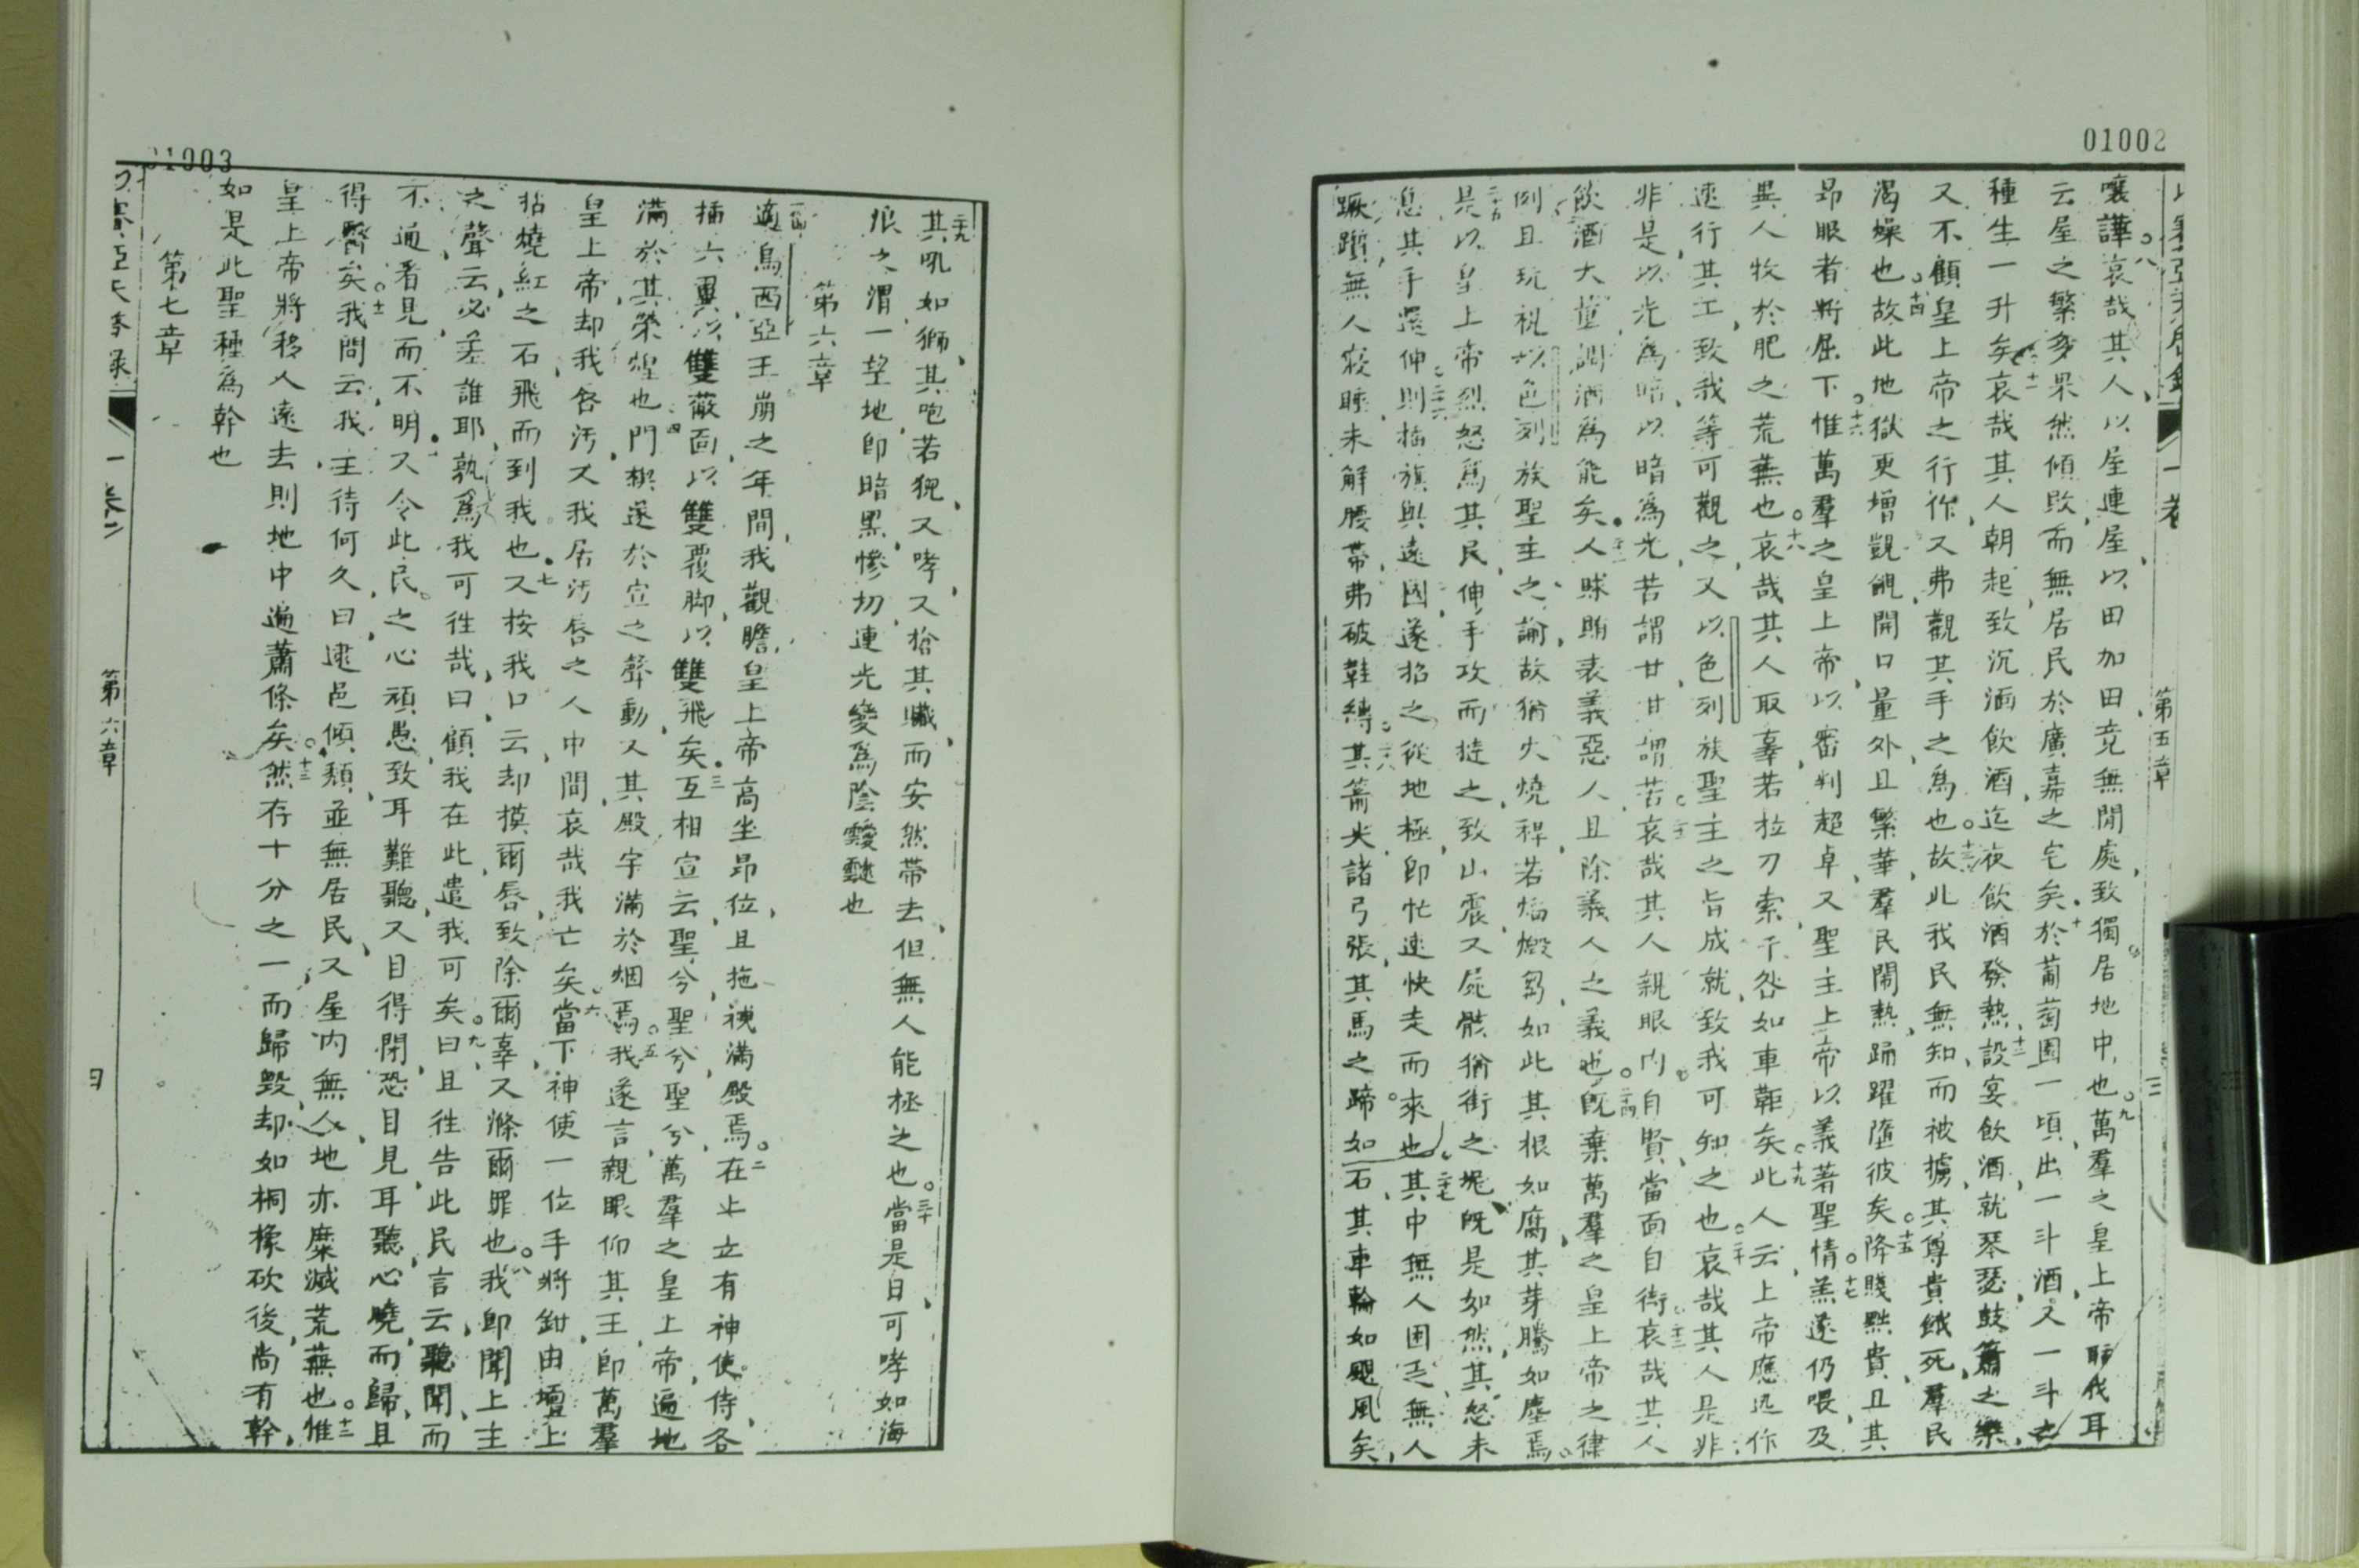 01002
第五章
三
嚷譁八哀哉其人以屋連屋以田加田竟無閒處致獨居地中也九萬羣之皇上帝耳
云屋之繁多果然傾敗而無居民於廣嘉之宅矣十於葡萄園一頃出一斗酒又一斗
種生一升矣十一哀哉其人朝起致沉酒飲酒迄夜飲酒發熱十二設宴飲酒就琴瑟鼓簫之樂
又不顧皇上帝之行作又弗觀其手之爲也十三故此我民無知而被擄其尊貴餓死羣民
渴燥也十四故此地獄更增覬覦開口量外且繁華羣民鬧熱踊躍墮彼矣十五降賤黜貴且其
昂眼者將屈下十六惟萬羣之皇上帝以審判超卓又聖主上帝以義著聖情十七羔遂仍喂及
異人牧於肥之荒蕪也十八哀哉其人取辜若拉刀索干咎如車軛矣十九此人云上帝應迅作
速行其工致我等可觀之又以色列族聖主之旨成就致我可知之也二十哀哉其人是非
非是以光爲暗以暗爲光苦謂甘甘謂苦二十一哀哉其人親眼內自賢當面自衒二十二哀哉其人
飲酒大量調酒爲能矣二十三人賕賄表義惡人且除義人之義也二十四旣棄萬羣之皇上帝之律
例且玩視以色列族聖主之諭故猶火燒稈若焰燬芻如此其根如腐其芽騰如塵焉
二十五是以皇上帝烈怒爲其民伸手攻而撻之致山震又屍骸猶街之坭旣是如然其怒未
息其手還伸二十六則插旗與遠國遂招之從地極即忙速快走而來也二十七其中無人困乏無人
蹶躓無人寂睡未解腰帶弗破鞋縛二十八其箭尖諸弓張其馬之蹄如石其車輪如颶風矣
01003
二十九其吼如獅其咆若猊又哮又搶其贓而安然帶去但無人能拯之也三十當是日可哮如海
浪之渭一望地即暗黑慘切連光變爲陰靉靆也
第六章
一適烏西亞王崩之年間我觀瞻皇上帝高坐昂位且拖襪滿殿焉二在上立有神使侍各
插六翼以雙蔽面以雙覆脚以雙飛矣三互相宣云聖兮聖兮聖兮萬羣之皇上帝遍地
滿於其榮煌也四門楔遂於宣之聲動又其殿宇滿於烟焉五我遂言親眼仰其王即萬羣
皇上帝却我唇污又我居污唇之人中間哀哉我亡矣六當下神使一位手將鉗由壇上
拈燒紅之石飛而到我也七又按我口云却摸爾唇致除爾辜又滌爾罪也八我即聞上主
之聲云必差誰耶孰爲我可徃哉曰顧我在此遣我可矣九曰且徃告此民言云聽聞而
不通看見而不明十又令此民之心頑愚致耳難聽又目得閉恐目見耳聽心曉而歸且
得醫矣十一我問云我主待何久曰逮邑傾頹並無居民又屋內無人地亦糜滅荒蕪也十二惟
皇上帝將移人遠去則地中遍蕭條矣十三然存十分之一而歸毁却如桐橡砍後尚有幹
如是此聖種爲幹也
第七章
第六章
四